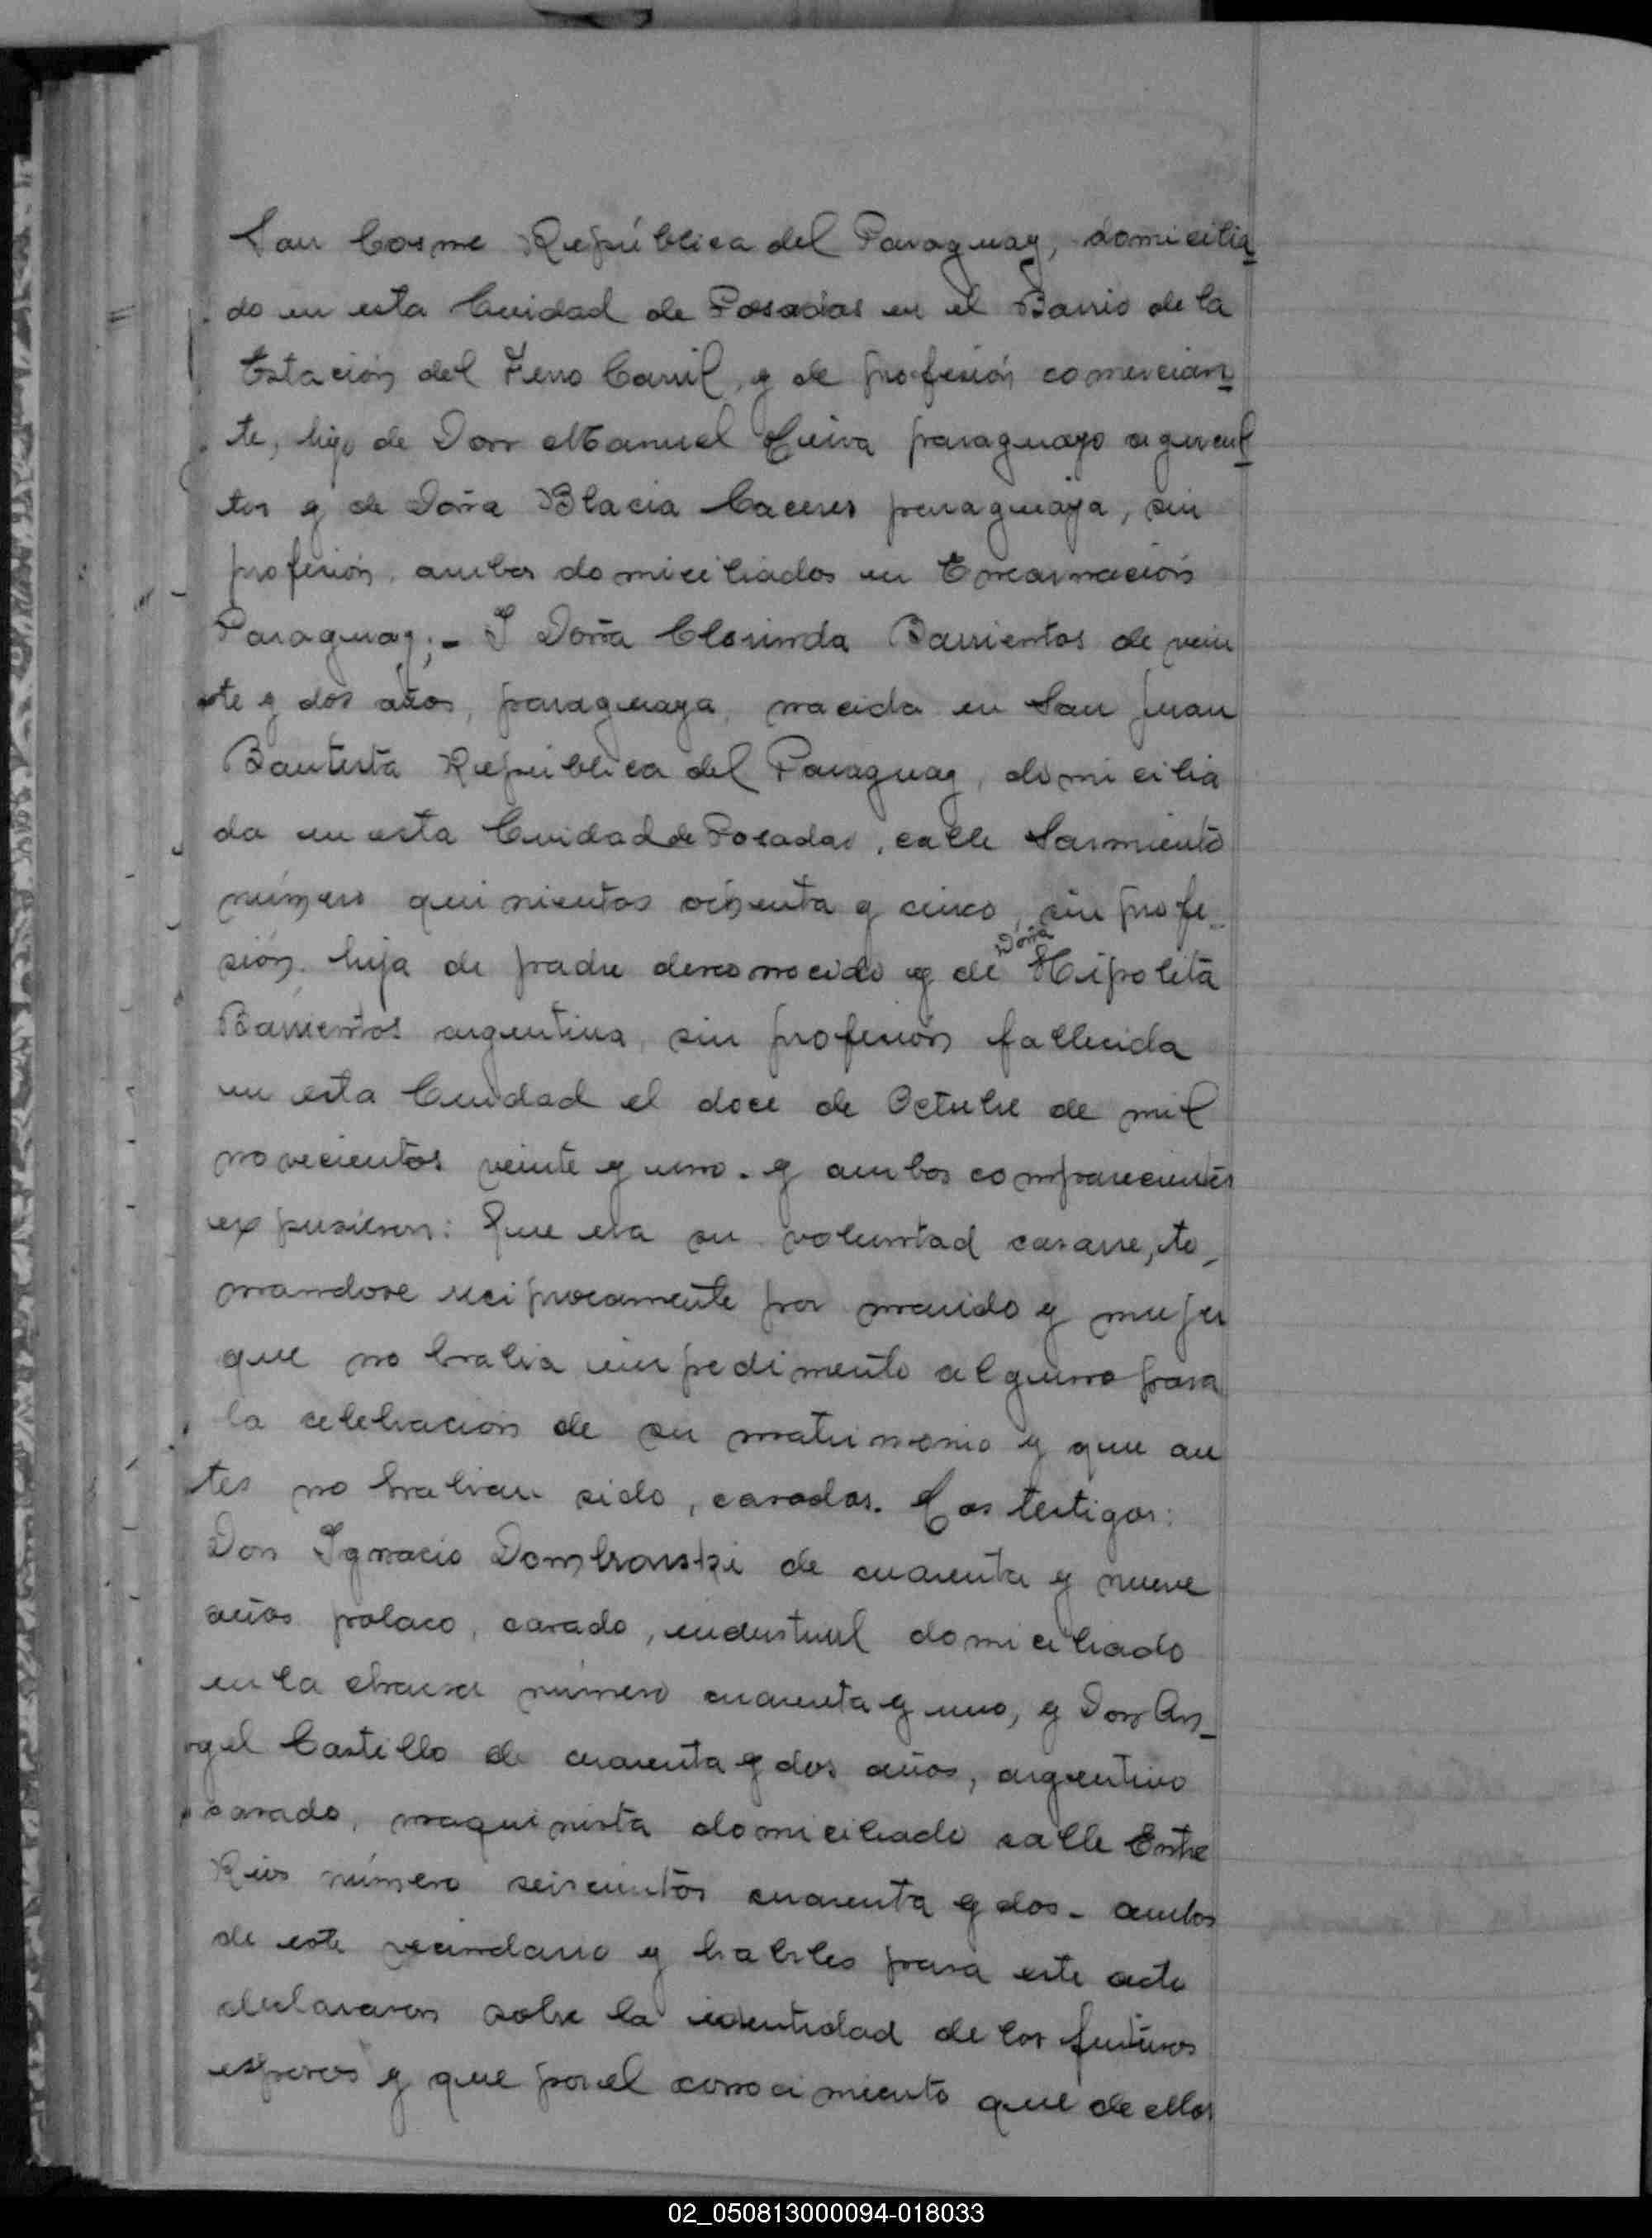 San Cosme República del Paraguay, domicilia
do en esta Cuidad de Posadas en el Barrio de la
Estación del Ferro Carril, y de profesión comercian
te, hijo de Don Manuel Leiva paraguayo agricul
tor y de Doña Blacia Caceres paraguaya, sin
profesión, ambos domiciliados en Encarnación
Paraguay;- I Doña Clorinda Barrientos de vein
te y dos años, paraguaya, nacida en San Juan
Bautista República del Paraguay, domicilia
da en esta Cuidad de Posadas, calle Sarmiento
número quinientos ochenta y cinco, sin profe-
sión, hija de padre desconocido y de Doña Hipolita
Barrientos argentina, sin profesión fallecida
en esta Cuidad el doce de Octubre de mil
novecientos veinte y uno. y ambos comparecientes
expusieron: Que era su voluntad casarse, to-
mandose reciprocamente por marido y mujer
que no habia impedimento alguno para
la celebración de su matrimonio y que an
tes no habian sido, casados. Los testigos:
Don Ignacio Dombronski de cuarenta y nueve
años polaco, casado, industrial domiciliado
en la chacra número cuarenta y uno, y Don An-
gel Castillo de cuarenta y dos años, argentino
casado, maquinista domiciliado calle Entre
Rios número seiscientos cuarenta y dos - ambos
de este vecindario y habiles para este acto
declararon sobre la identidad de los futuros
esposos y que por el conocimiento que de ellos
02_050813000094-018033